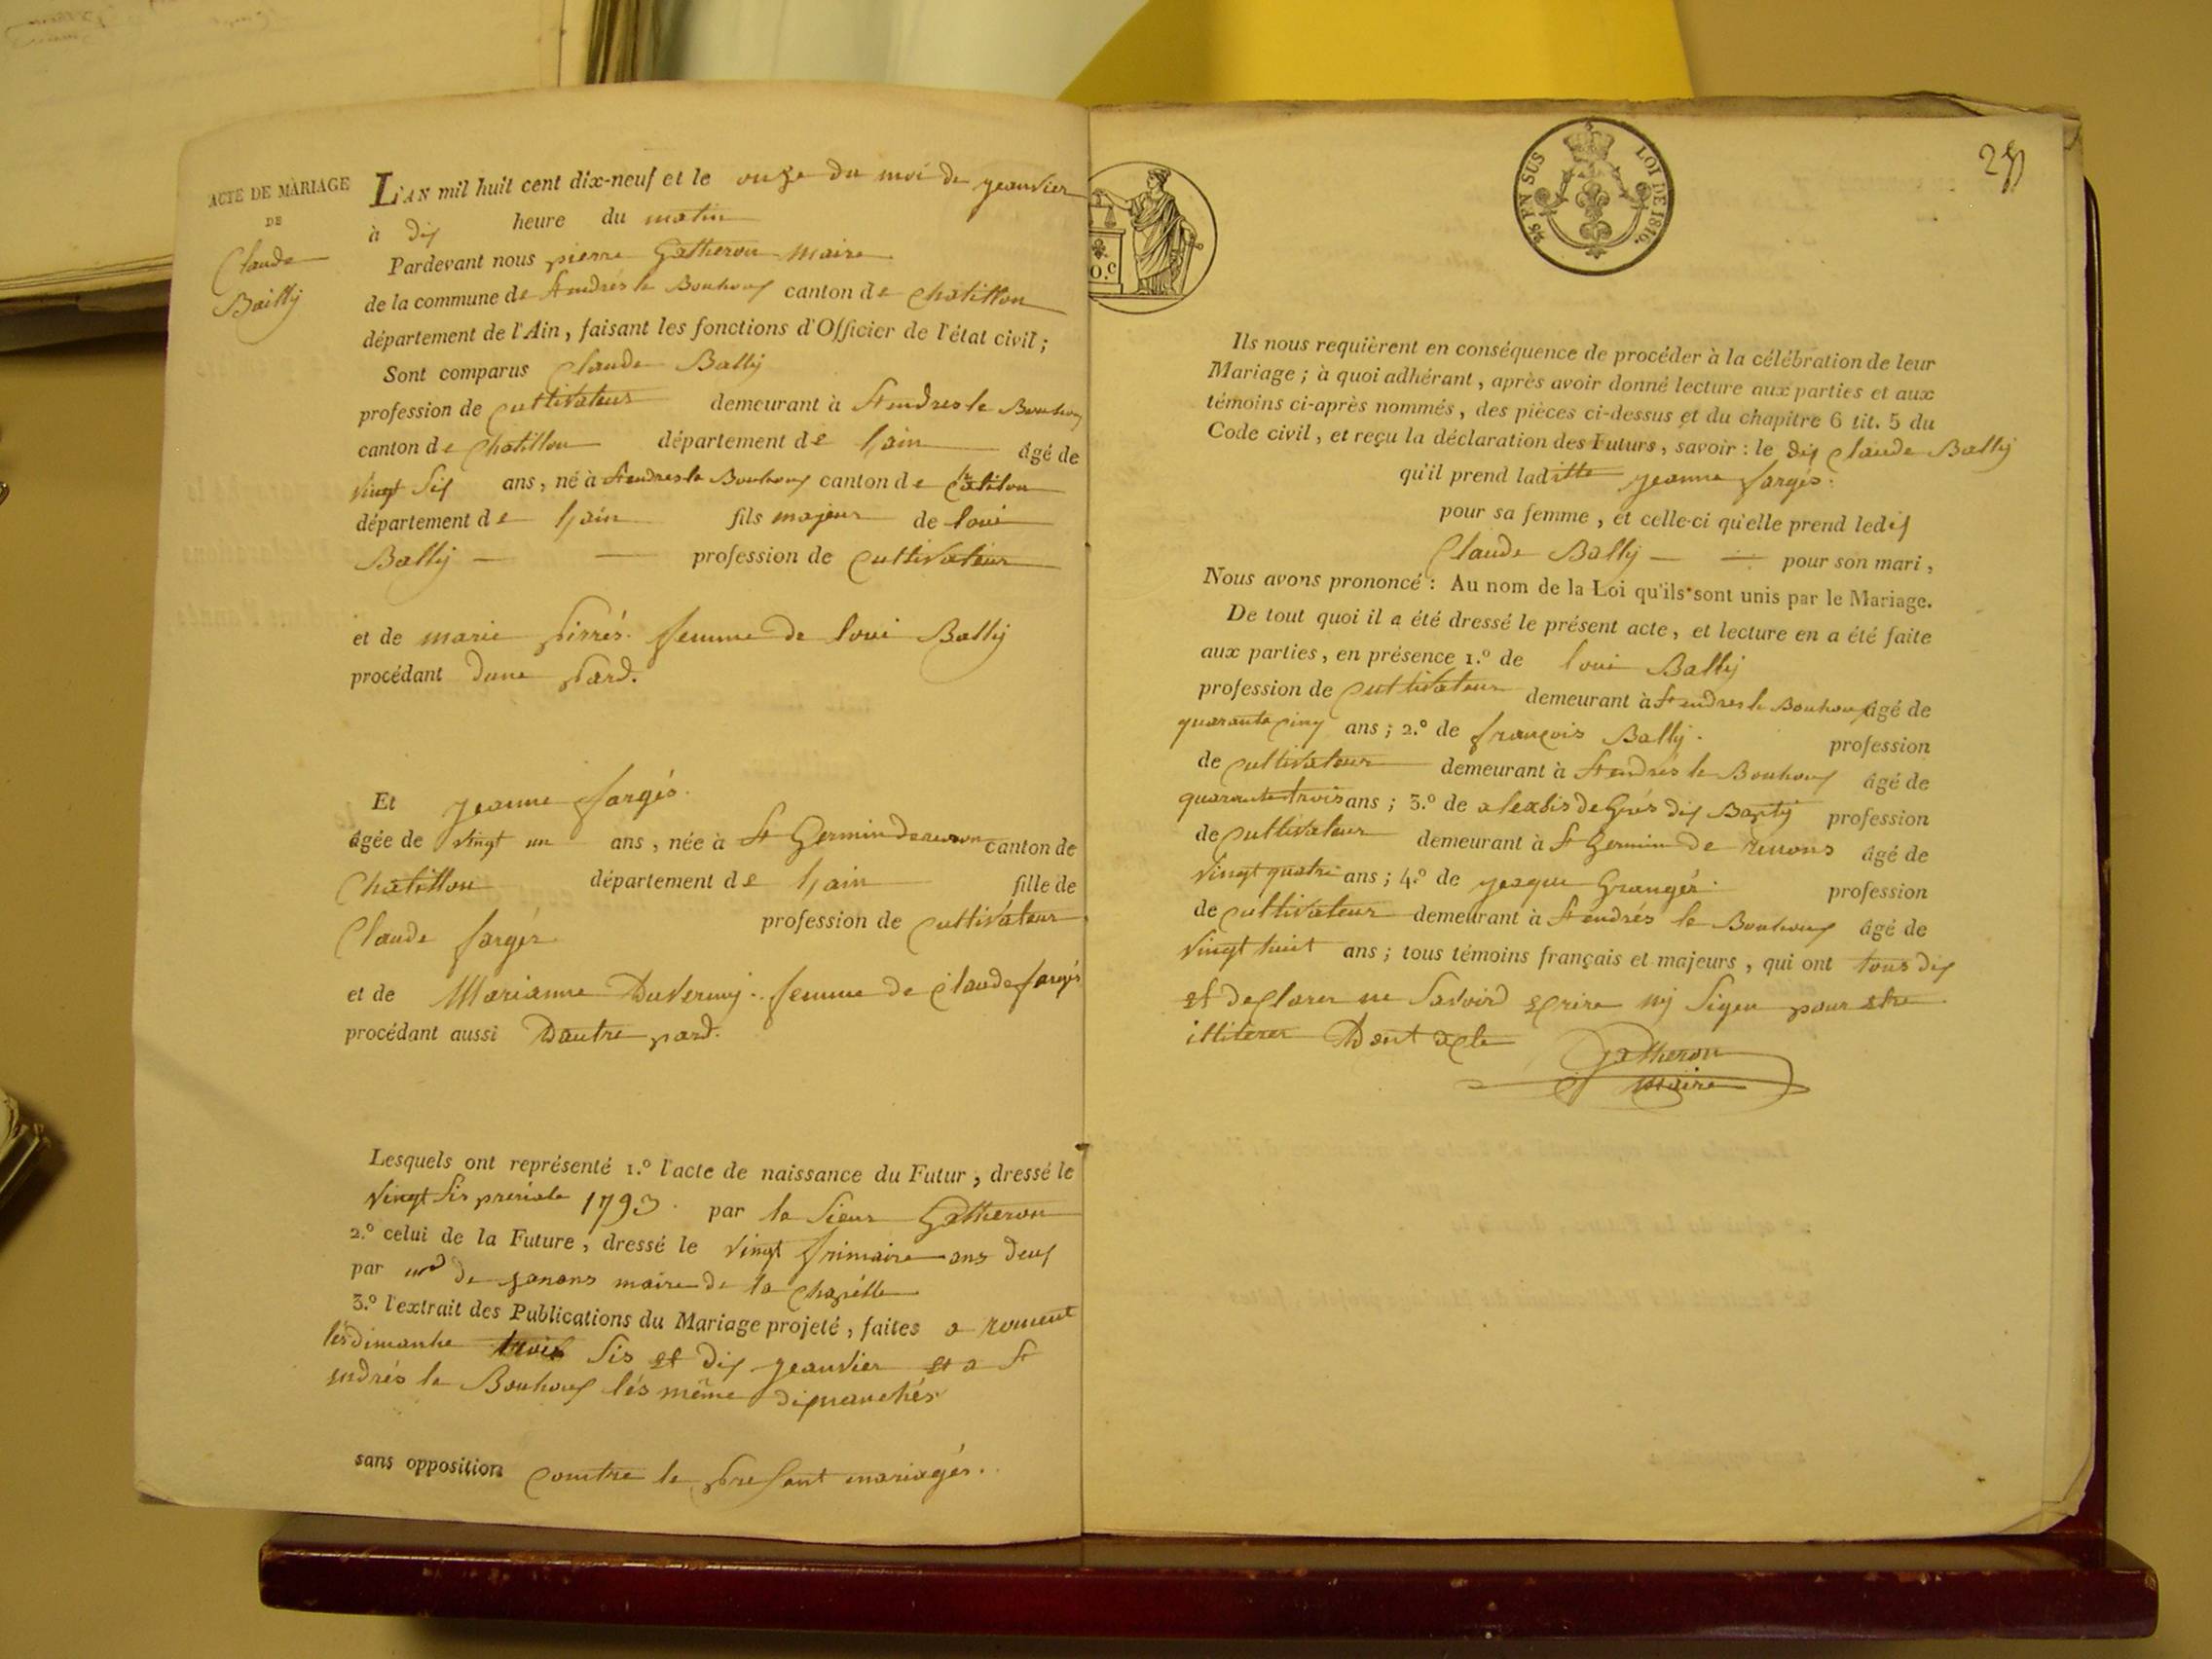 ACTE DE MARIAGE
DE
Claude
Bailly
L'AN mil huit cent dix-neuf et le onze du moi de jeanvier
à dix heure du matin
Pardevant nous pierre Gatheron maire
de la commune de St endrés le Bouhoux canton de Chatillon
département de l'Ain, faisant les fonctions d'Officier de l'état civil ;
Sont comparus Claude Bally
profession de Cultivateur demeurant à St endres le Bouhoux
canton de Chatillon département de l'ain âgé de
vingt six ans, né à St endres le Bouhoux canton de
département de l'ain fils majeur de loui
Bally — — profession de Cultivateur
et de marie femme de loui Bally
procédant dune pard.
Et jeanne fargés.
âgée de vingt un ans, née à St Germin canton de
Chatillon département de l'ain fille de
Claude fargés profession de Cultivateur
et de Marianne femme de Claude fargés
procédant aussi Dautre pard.
Lesquels ont représenté 1.° l'acte de naissance du Futur, dressé le
vingt six 1793. par le sieur Gatheron
2.° celui de la Future, dressé le vingt frimaire ans deux
par de maire de la Chapélle
3.° l'extrait des Publications du Mariage projeté, faites a
lésdimanhe sis et dix jeanvier et a St
endrés le Bouhoux lés même
sans opposition contre le présent mariagés.
25 EN SUS
LOI DE 1816.
0.c
Ils nous requièrent en conséquence de procéder à la célébration de leur
Mariage ; à quoi adhérant, après avoir donné lecture aux parties et aux
témoins ci-après nommés, des pièces ci-dessus et du chapitre 6 tit. 5 du
Code civil, et reçu la déclaration des Futurs, savoir : le dix Claude Bally
qu'il prend laditte jeanne fargés.
pour sa femme, et celle-ci qu'elle prend ledix
Claude Bally — — pour son mari,
Nous avons prononcé : Au nom de la Loi qu'ils sont unis par le Mariage.
De tout quoi il a été dressé le présent acte, et lecture en a été faite
aux parties, en présence 1.° de loui Bally
profession de Cultivateur demeurant à St endres le Bouhoux âgé de
quarante cinq ans ; 2.° de françois Bally. profession
de Cultivateur demeurant à St endrés le Bouhoux âgé de
quarante trois ans ; 3.° de dix profession
de Cultivateur demeurant à St Germin de âgé de
vingt quatre ans ; 4.° de jaque Grangér. profession
de Cultivateur demeurant à St endrés le Bouhoux âgé de
vingt huit ans ; tous témoins français et majeurs, qui ont tous dix
et declarer ne savoird ecrire ny signer pour etre
illiterer Dont acte Gatheron
maire